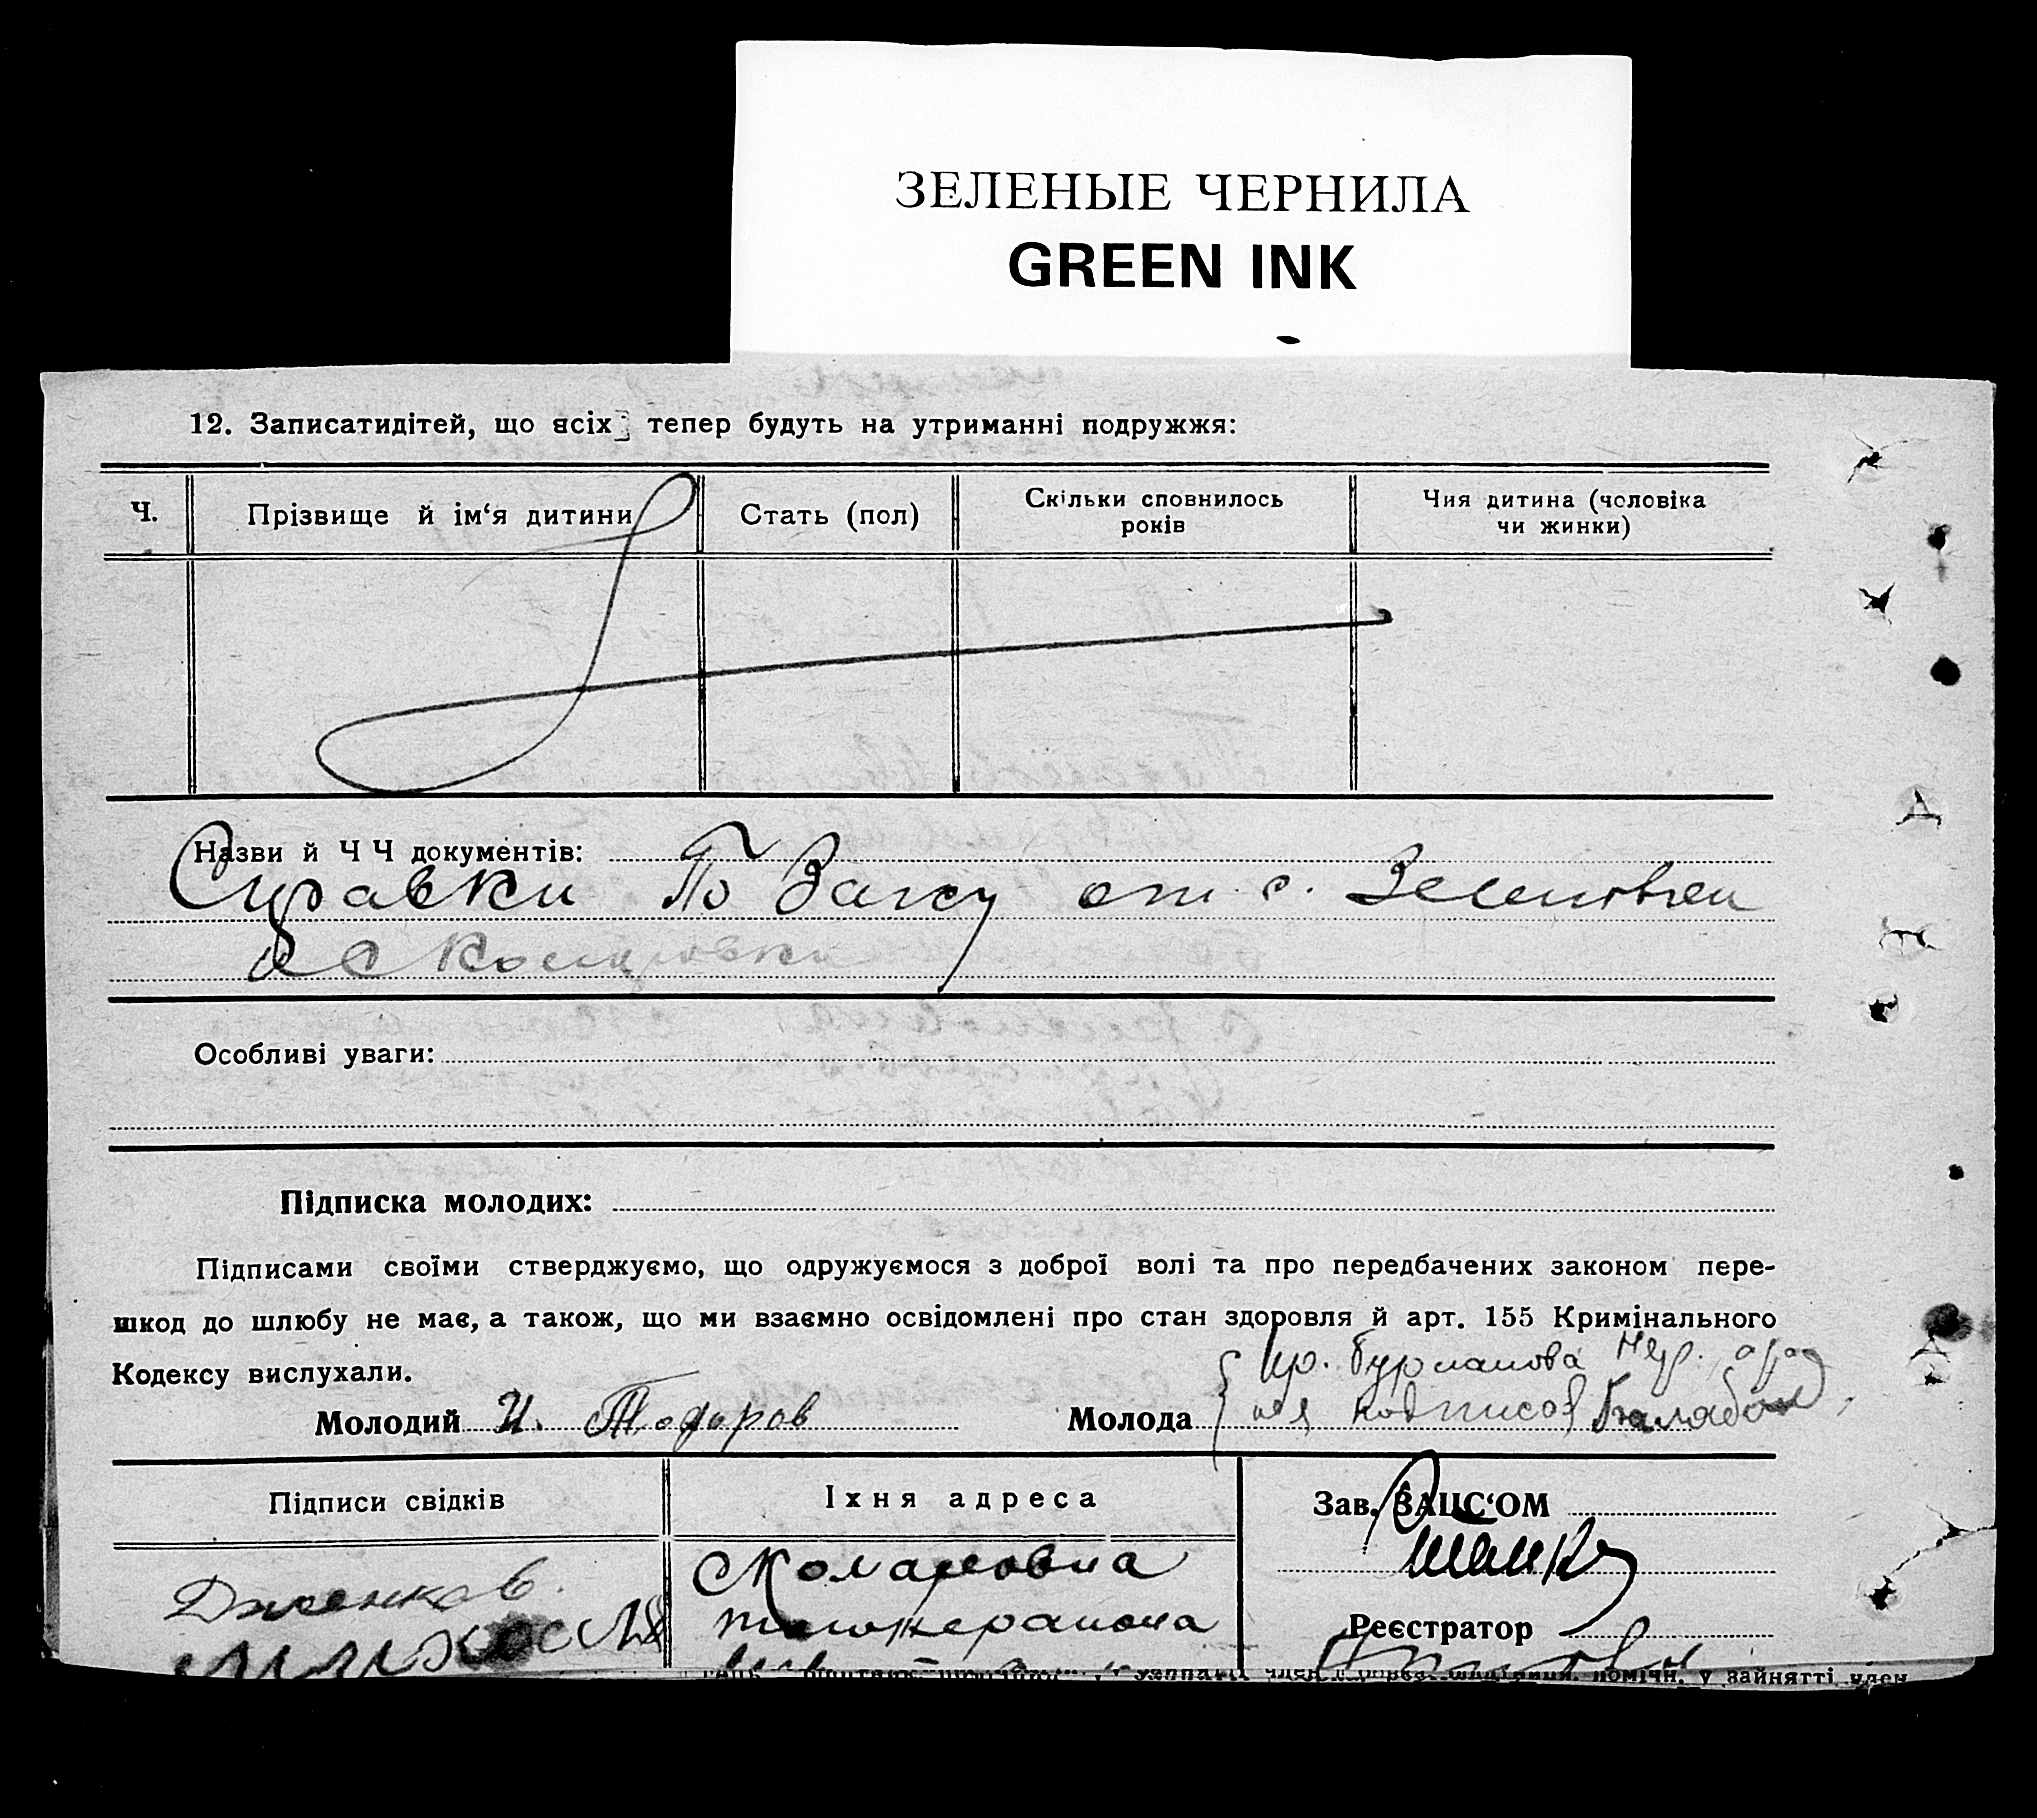 ЗЕЛЕНЫЕ ЧЕРНИЛА
GREEN INK
12. Записатидітей, що всіх тепер будуть на утриманні подружжя:
Ч.
Прізвище й ім‘я дитини
Стать (пол)
Скільки сповнилось
років
Чия дитина (чоловіка
чи жинки)
Назви й Ч Ч документів:
Справки По Загсу от с.
и с
Особливі уваги:
Підписка молодих:
Підписами своїми стверджуємо, що одружуємося з доброї волі та про передбачених законом пере-
шкод до шлюбу не має, а також, що ми взаємно освідомлені про стан здоровля й арт. 155 Кримінального
Кодексу вислухали.
гр. Бурланова
Молодий И. Тодоров
Молода
Підписи свідків
Їхня адреса
Зав. ЗАЦС‘ОМ
Дженков
Реєстратор
помічн. у зайнятті член